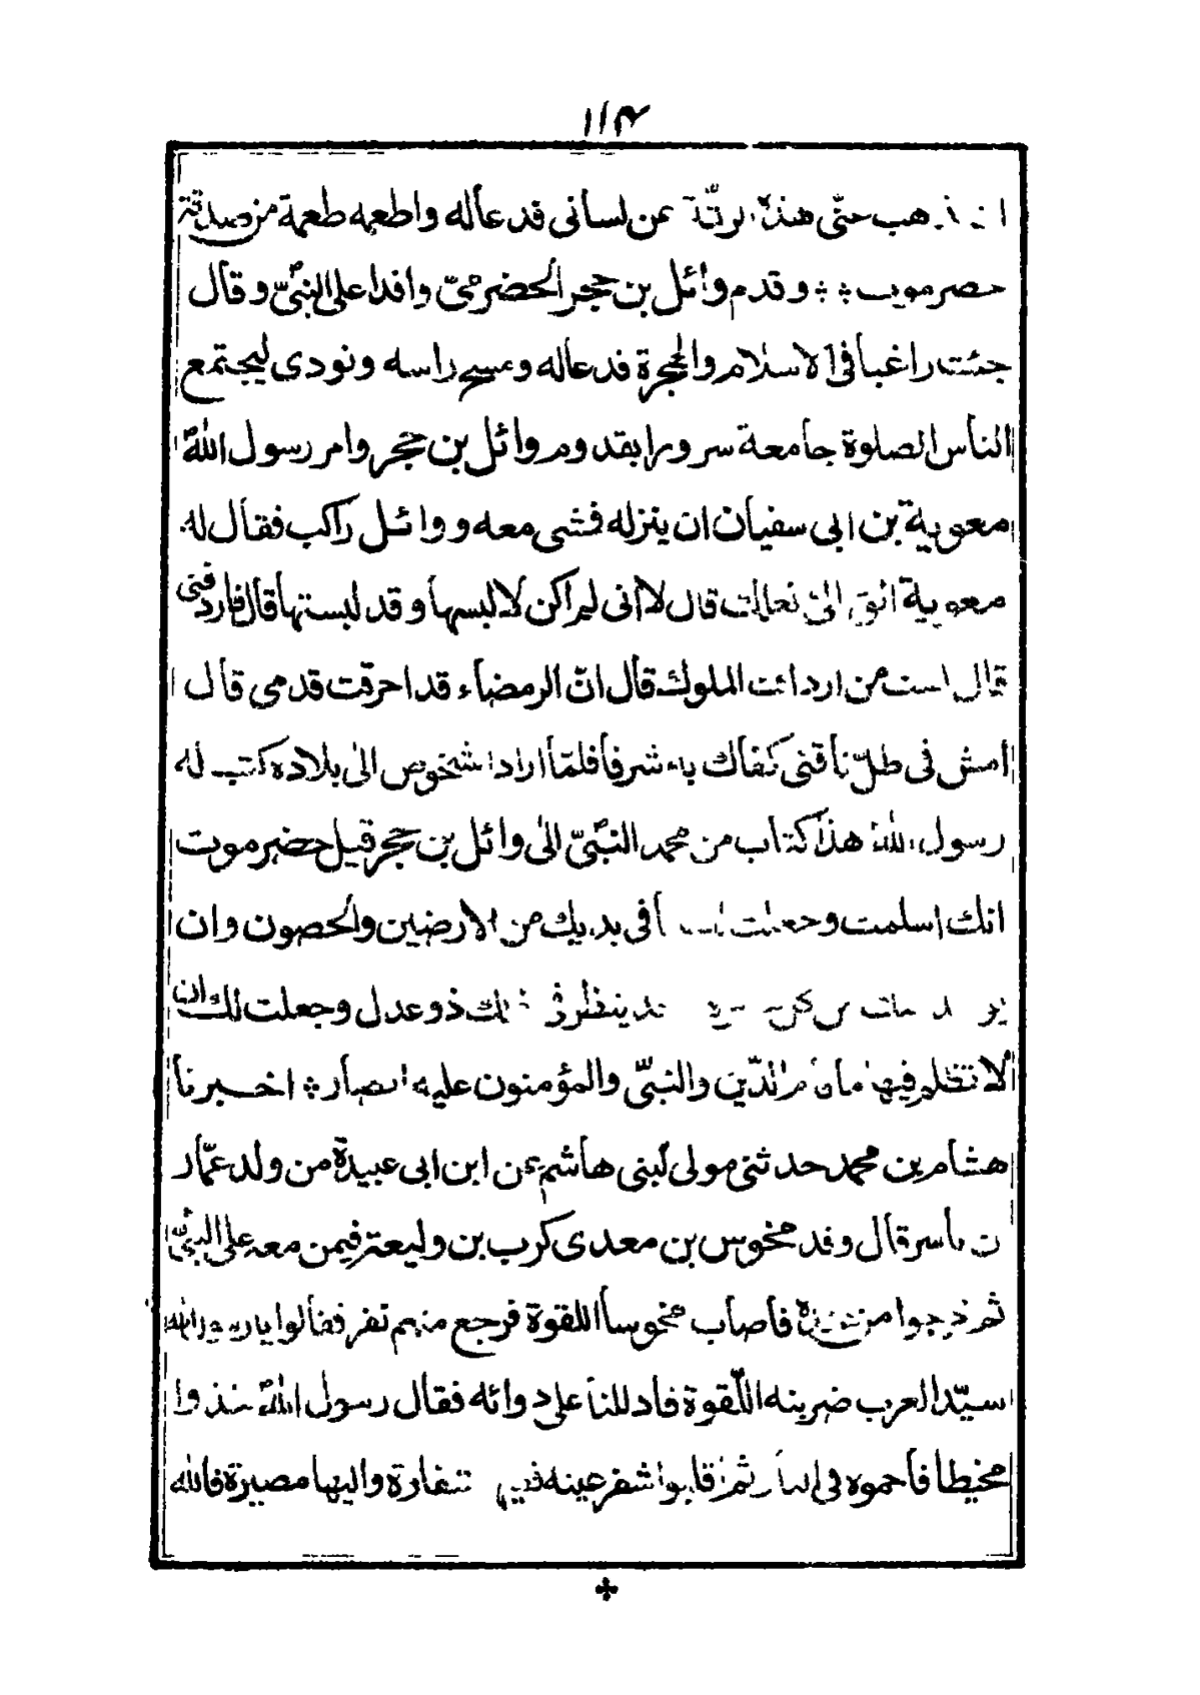 ١١٤
هب حتى هذه الرتة عن لسانى فدعاله واطعمه طعمة من صدقة
حضرموت ؞ وقدم وائل بن حجر الحضرمىّ وافدا على النبىّ وقال
جئت راغبا فى الاسلام والهجرة فدعاله ومسح راسه ونودى ليجتمع
الناس الصلوة جامعة سرورا بقدوم وائل بن حجر وامر رسول اللهؐ
معوية بن ابى سفيان ان ينزله فمشى معه ووائل راكب فقال له
معوية الق الىّ نعلك قال لا انى لم اكن لالبسها وقد لبستها قال فاردفنى
قال لست من ارداف الملوك قال انّ الرمضاء قد احرقت قدمى قال
امش فى ظلّ ناقتى كفاك به شرفا فلمّا اراد الشخوص الى بلاده كتب له
رسول اللهؐ هذا كتاب من محمد النبىّ الى وائل بن حجر قيل حضرموت
انك اسلمت وجعلت لك ما فى يديك من الارضين والحصون وان
من كل ينظر فى ذلك ذو عدل وجعلت لك ان
لا تظلم فيها ما قام الدّين والنبىّ والمؤمنون عليه انصار ؞ اخبرنا
هشام بن محمد حدثنى مولى لبنى هاشم عن ابن ابى عبيدة من ولد عمّار
بن ياسر قال وفد مخوس بن معدى كرب بن وليعة فيمن معه على النبىّ
ثم خرجوا من عنده فأصاب مخوسا اللقوة فرجع منهم نفر فقالوا يا رسول الله
سيّد العرب ضربته اللّقوة فادللنا على دوائه فقال رسول اللهؐ خذوا
مخيطا فأحموه فى النار ثم اقلبوا شفر عينه ففيها واليها مصيرة فالله